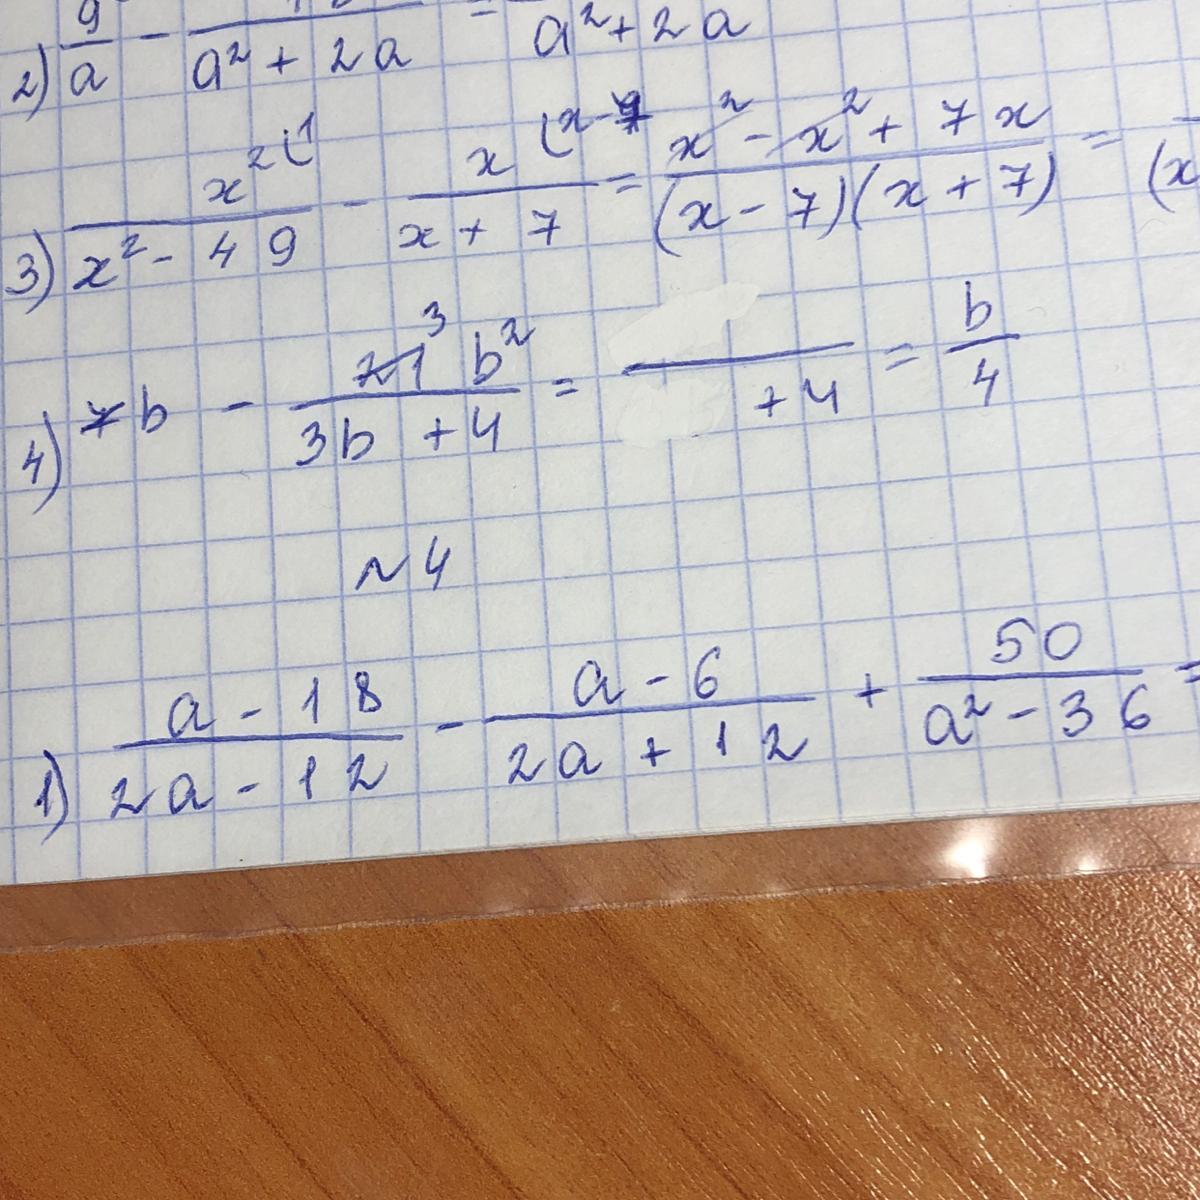 2) 9/a - /(a² + 2a) = /(a² + 2a)
3) x²/(x² - 49) - x/(x + 7) = (x² - x² + 7x)/((x - 7)(x + 7)) = /(x
4) 7b - 21³b²/(3b + 4) = /(+ 4) = b/4
~4
1) (a - 18)/(2a - 12) - (a - 6)/(2a + 12) + 50/(a² - 36) =